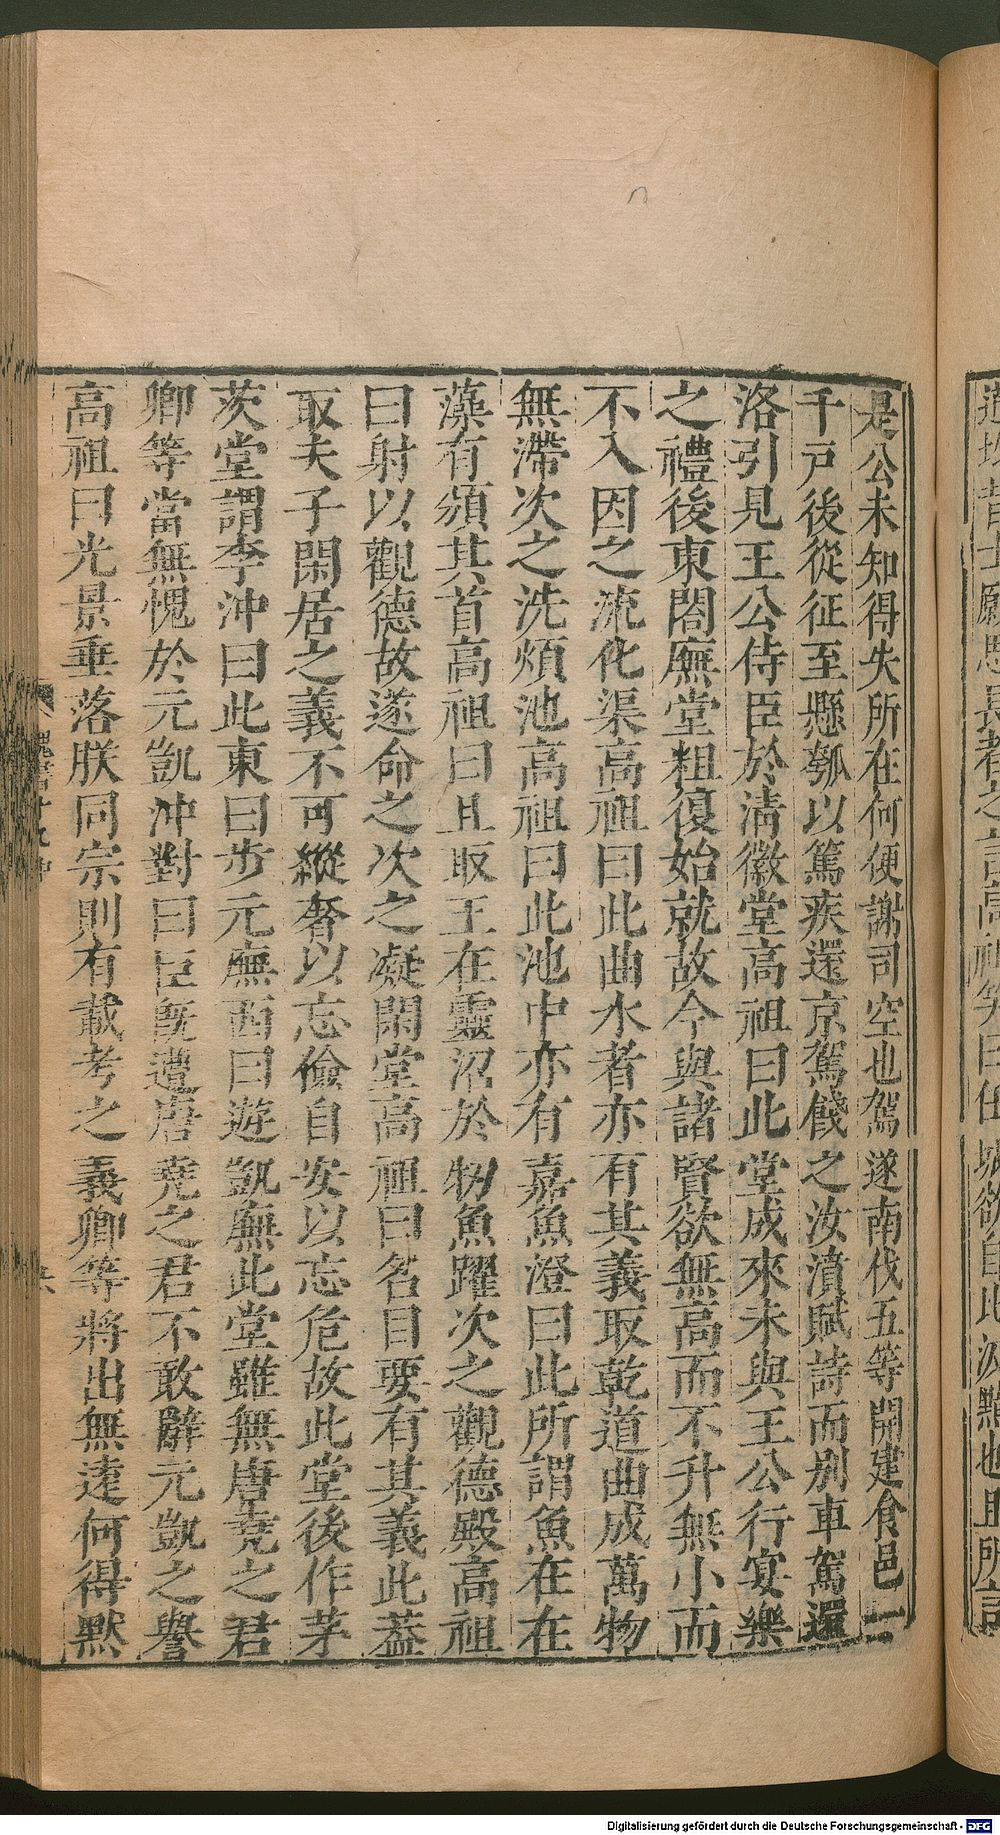 是公未知得失所在何便謝司空也駕遂南伐五等開建食邑一
千戸後從征至懸瓠以篤疾還京駕餞之汝濆賦詩而别車駕還
洛引見王公侍臣於清徽堂高祖曰此堂成來未與王公行宴樂
之禮後東閤廡堂粗復始就故今與諸賢欲無高而不升無小而
不入因之流化渠高祖曰此曲水者亦有其義取乾道曲成萬物
無滯次之洗煩池高祖曰此池中亦有嘉魚澄曰此所謂魚在在
藻有頒其首高祖曰且取王在靈沼於牣魚躍次之觀德殿高祖
曰射以觀德故遂命之次之凝閑堂高祖曰名目要有其義此葢
取夫子閑居之義不可縱奢以忘儉自安以忘危故此堂後作茅
茨堂謂李沖曰此東曰步元廡西曰遊凱廡此堂雖無唐堯之君
卿等當無愧於元凱沖對曰臣既遭唐堯之君不敢辭元凱之譽
高祖曰光景垂落朕同宗則有載考之義卿等將出無逺何得默
魏書十九中
Digitalisierung gefördert durch die Deutsche Forschungsgemeinschaft - DFG